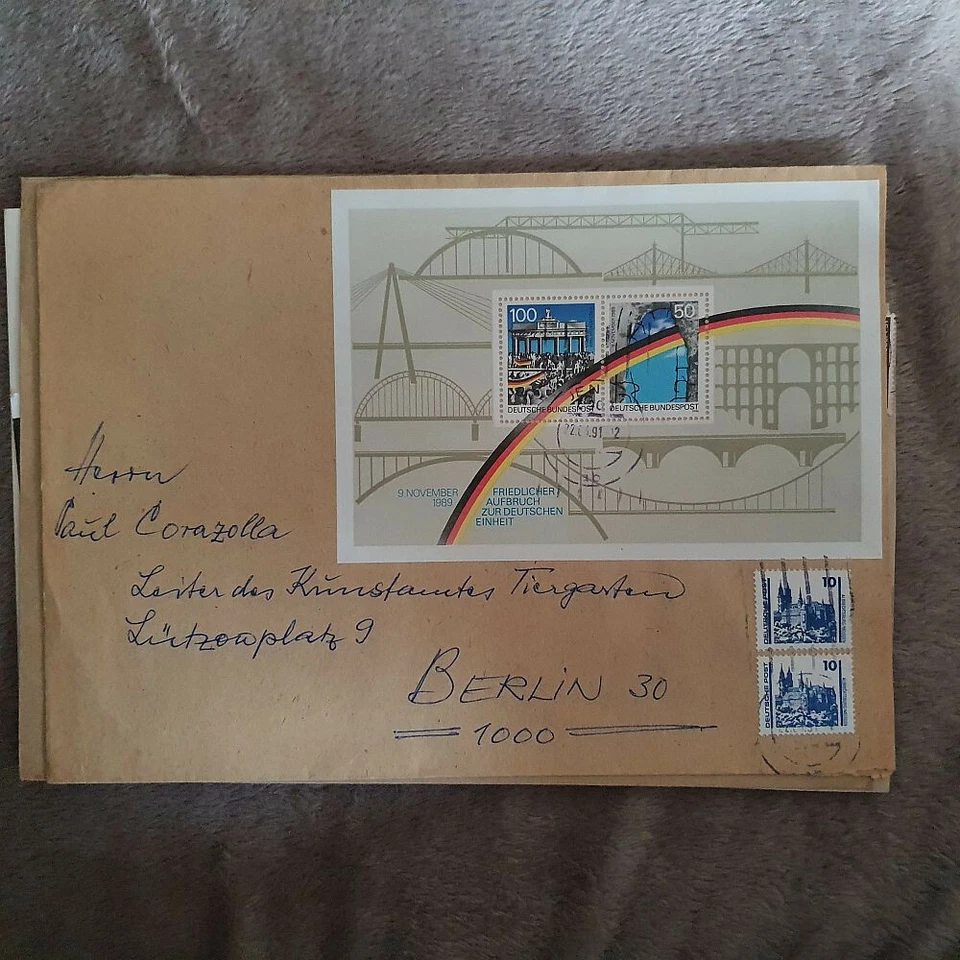 100
50
DEUTSCHE BUNDESPOST
DEUTSCHE BUNDESPOST
9 NOVEMBER
1989
FRIEDLICHER
AUFBRUCH
ZUR DEUTSCHEN
EINHEIT
Herrn
Paul Corazolla
Leiter des Kunstamtes Tiergarten
Lützowplatz 9
BERLIN 30
1000
10
DEUTSCHE POST
10
DEUTSCHE POST